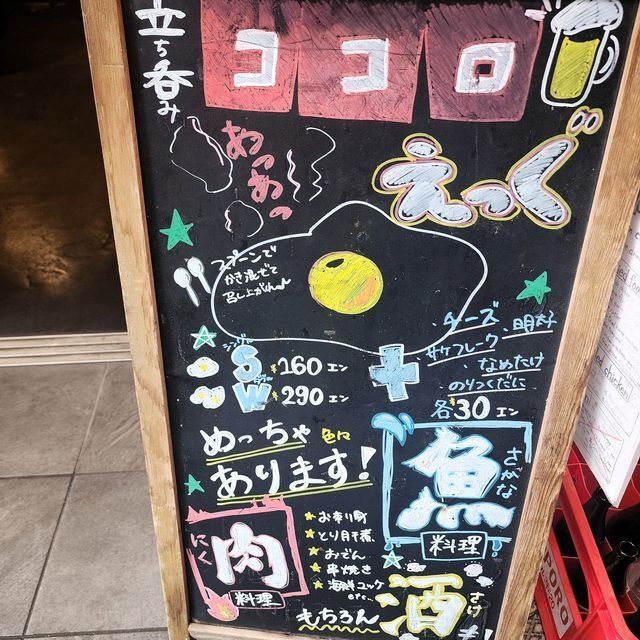 立ち呑み
ココロ
あつあっ
えっぐ
スプーンで
かき混ぜて
召し上がれ
チーズ 明太子
サケフレーク
なめたけ
のりつくだに
各¥30エン
シングル
S ¥160エン
ダブル
W ¥290エン
+
めっちゃ色々
あります!
魚 さかな
料理
肉 にく
料理
お刺身
とり肝煮
おでん
串焼き
海鮮ユッケ
etc..
もちろん
酒 さけ
も!
PORO